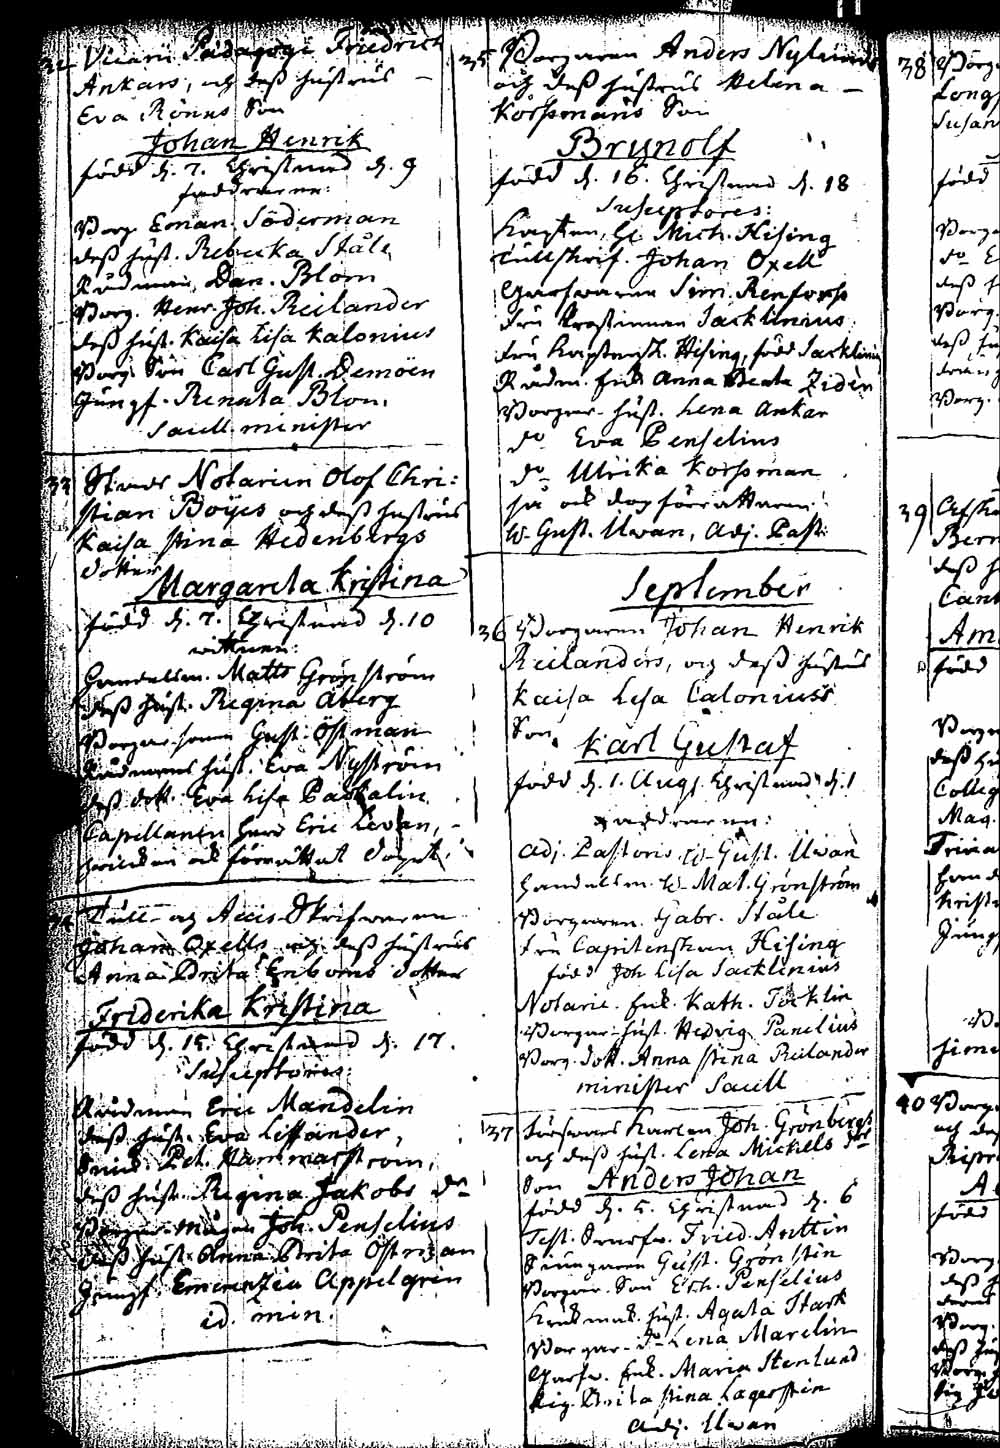 32 Vicarii Pædagogi Friedrich
Ankars, och dess hustrus
Eva Rönns Son
Johan Henrik
född d. 7. Christnad d. 9
faddrarne:
Borg. Eman. Söderman
dess hust. Rebecka Ståle
Rådman Dan. Blom
Borg. Henr. Joh. Reilander
dess hust. Kaisa Lisa Kalonius
Borg. Son Carl Gust. Demoen
Jungf. Renata Blom.
Saull minister
33 Stads Notarien Olof Chri:
stian Böijes och dess hustrus
Kaisa Stina Hedenbergs
dotter
Margareta Kristina
född d. 7. Christnad d. 10
vittnen:
Handelsm. Matts Grönström
dess hust. Regina Åberg
Borgare sonen Gust. Östman
Rådmans hust. Eva Nyström
dess dott. Eva Lisa Paskalin
Capellanen Herr Eric Levan,
hvilken ock förrättat dopet.
34 Tull- och Accis-Skrifvaren
Johan Oxells och dess hustrus
Anna Brita Enboms dotter
Friderika Kristina
född d. 15. Christnad d. 17.
Susceptores:
Rådman Eric Mandelin
dess hust. Eva Littander,
Smed. Pet. Hammarstrom,
dess hust. Regina Jakobs dr
Borgar-mågen Joh. Penselius
dess hust. Anna Brita Östman
Jungf. Emerenzia Appelgrin
id. min.
35 Borgaren Anders Nylunds
och dess hustrus Helena
Korsmans Son
Brynolf
född d. 16. Christnad d. 18
Susceptores:
Kapten, G. Mich. Hising
Tullskrif. Johan Oxell
Garfvaren Sim. Renfors
Fru Prostinnan Sacklinius
Fru Kaptensk. Hising, född Sacklinius
Rådm. Enk. Anna Beata Zidén
Borgar-hust. Lena Ankar
do Eva Penselius
do Ulrika Korsman
så ock dopförrättaren
W. Gust. Uwan, Adj. Past.
September
36 Borgaren Johan Henrik
Reilanders, och dess hustrus
Kaisa Lisa Calonius's
Son
Karl Gustaf
född d. 1. Aug. Christnad d. 1
Faddrarne:
Adj. Pastoris W. Gust. Uwan
Handelsm. W. Mat. Grönström
Borgaren Gabr. Ståle
Fru Capitenskan Hising
född Joh Lisa Sacklinius
Notarie. Enk. Kath. Tocklin
Borgar-hust. Hedvig Panelius
Borg. dott. Anna Stina Reilander
minister Saull
37 Joh. Grönbergs
och dess hust. Lena Mickels dr
Son Anders Johan
född d. 5. Christnad d. 6
Test. Fried. Anttin
Gust. Grönstin
Borgar. Son Erh. Penselius
hust. Agata Stark
Borgar- do Lena Marelin
Garfv. Enk. Maria Stenlund
Pig. Brita Stina Lagerstin
Adj. Uwan
38 Borg
Long
Susan
född
Borg
do E
dess h
Borg.
dess hu
Borg.
39
Bern
dess h
Cant
Am
född
Borg
dess hu
Colleg
Mag.
Trivia
Hand
Kristi
Jung
Sime
40 Borg
och dess
Repr
A
född
Borg
dess h
Borg.
dess hu
Borg.